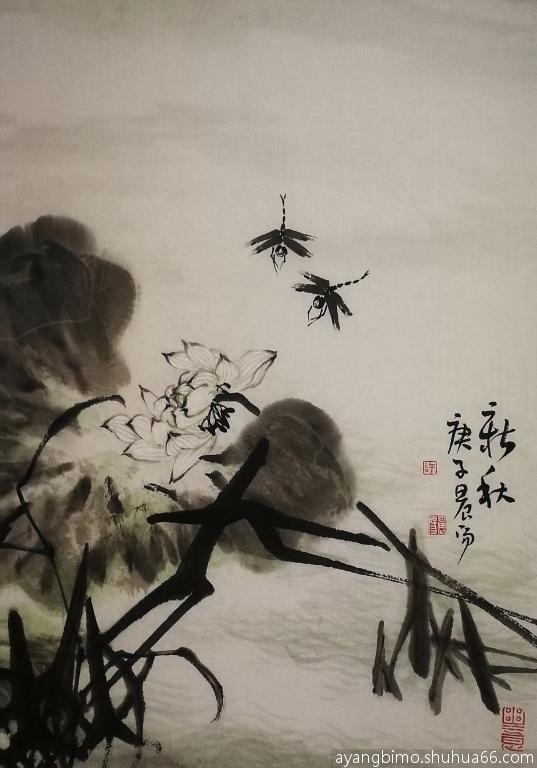 新秋
庚子晨雨
ayangbimo.shuhua66.com